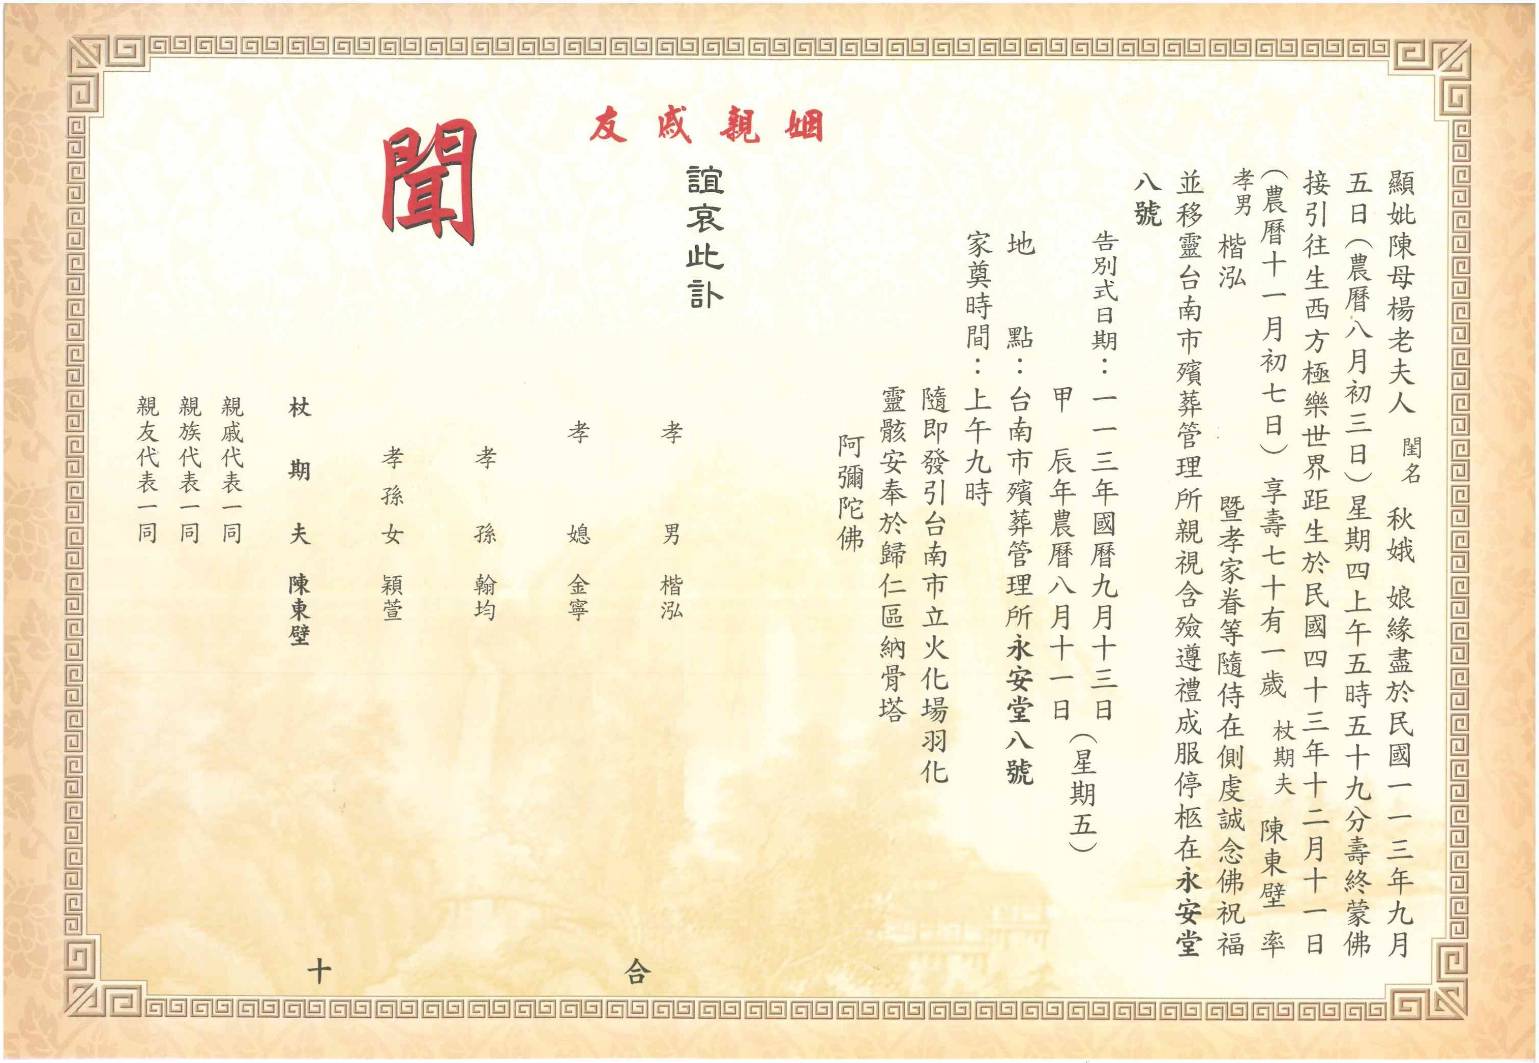 顯妣陳母楊老夫人 閨名 秋娥 娘緣盡於民國一一三年九月
五日（農曆八月初三日）星期四上午五時五十九分壽終蒙佛
接引往生西方極樂世界距生於民國四十三年十二月十一日
（農曆十一月初七日）享壽七十有一歲 杖期夫 陳東壁 率
孝男 楷泓 暨孝家眷等隨侍在側虔誠念佛祝福
並移靈台南市殯葬管理所親視含殮遵禮成服停柩在永安堂
八號
告別式日期：一一三年國曆九月十三日
甲 辰年農曆八月十一日
（星期五）
地 點：台南市殯葬管理所永安堂八號
家奠時間：上午九時
隨即發引台南市立火化場羽化
靈骸安奉於歸仁區納骨塔
阿彌陀佛
姻親戚友
誼哀此訃
聞
孝 男 楷泓
孝 媳 金寧
孝 孫 翰均
孝孫女 穎萱
杖期夫 陳東壁
親戚代表一同
親族代表一同
親友代表一同
合 十